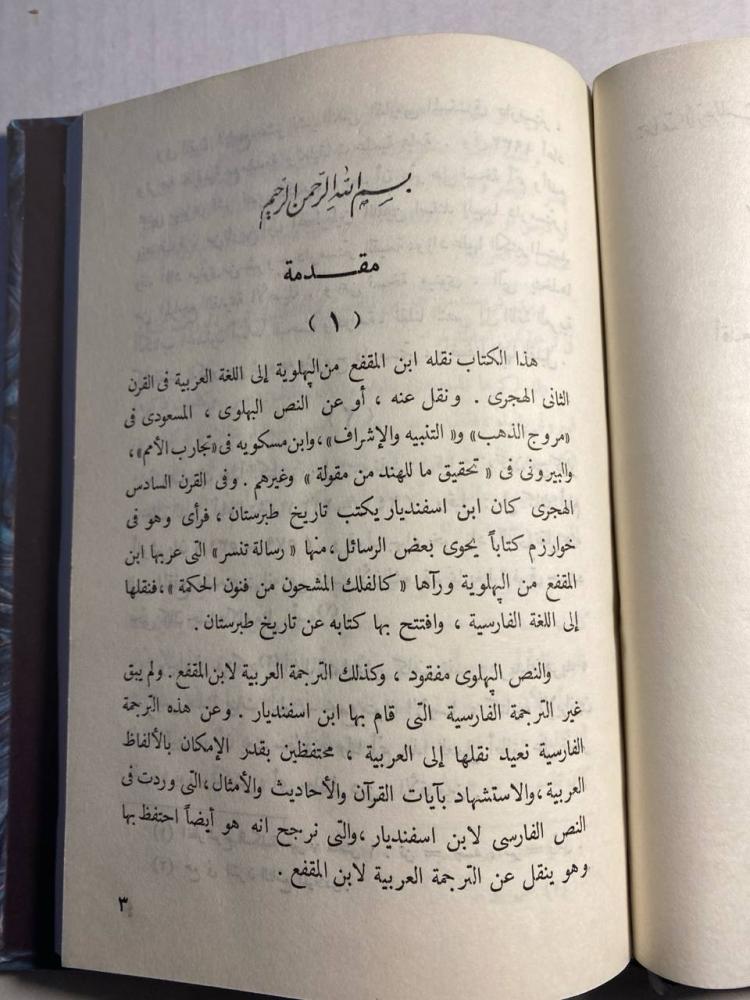 بسم الله الرحمن الرحيم
مقـــدمة
( ١ )
هذا الكتاب نقله ابن المقفع من البهلوية إلى اللغة العربية فى القرن
الثانى الهجرى . ونقل عنه ، أو عن النص البهلوى ، المسعودى فى
«مروج الذهب» و« التنبيه والإشراف»،وابن مسكويه فى «تجارب الأمم»،
والبيرونى فى « تحقيق ما للهند من مقولة » وغيرهم . وفى القرن السادس
الهجرى كان ابن اسفنديار يكتب تاريخ طبرستان ، فرأى وهو فى
خوارزم كتاباً يحوى بعض الرسائل،منها « رسالة تنسر» التى عربها ابن
المقفع من البهلوية ورآها «كالفلك المشحون من فنون الحكمة »،فنقلها
إلى اللغة الفارسية ، وافتتح بها كتابه عن تاريخ طبرستان .
والنص البهلوى مفقود ، وكذلك الترجمة العربية لابن المقفع . ولم يبق
غير الترجمة الفارسية التى قام بها ابن اسفنديار . وعن هذه الترجمة
الفارسية نعيد نقلها إلى العربية ، محتفظين بقدر الإمكان بالألفاظ
العربية ،والاستشهاد بآيات القرآن والأحاديث والأمثال،التى وردت فى
النص الفارسى لابن اسفنديار ،والتى نرجح انه هو أيضاً احتفظ بها
وهو ينقل عن الترجمة العربية لابن المقفع .
٣